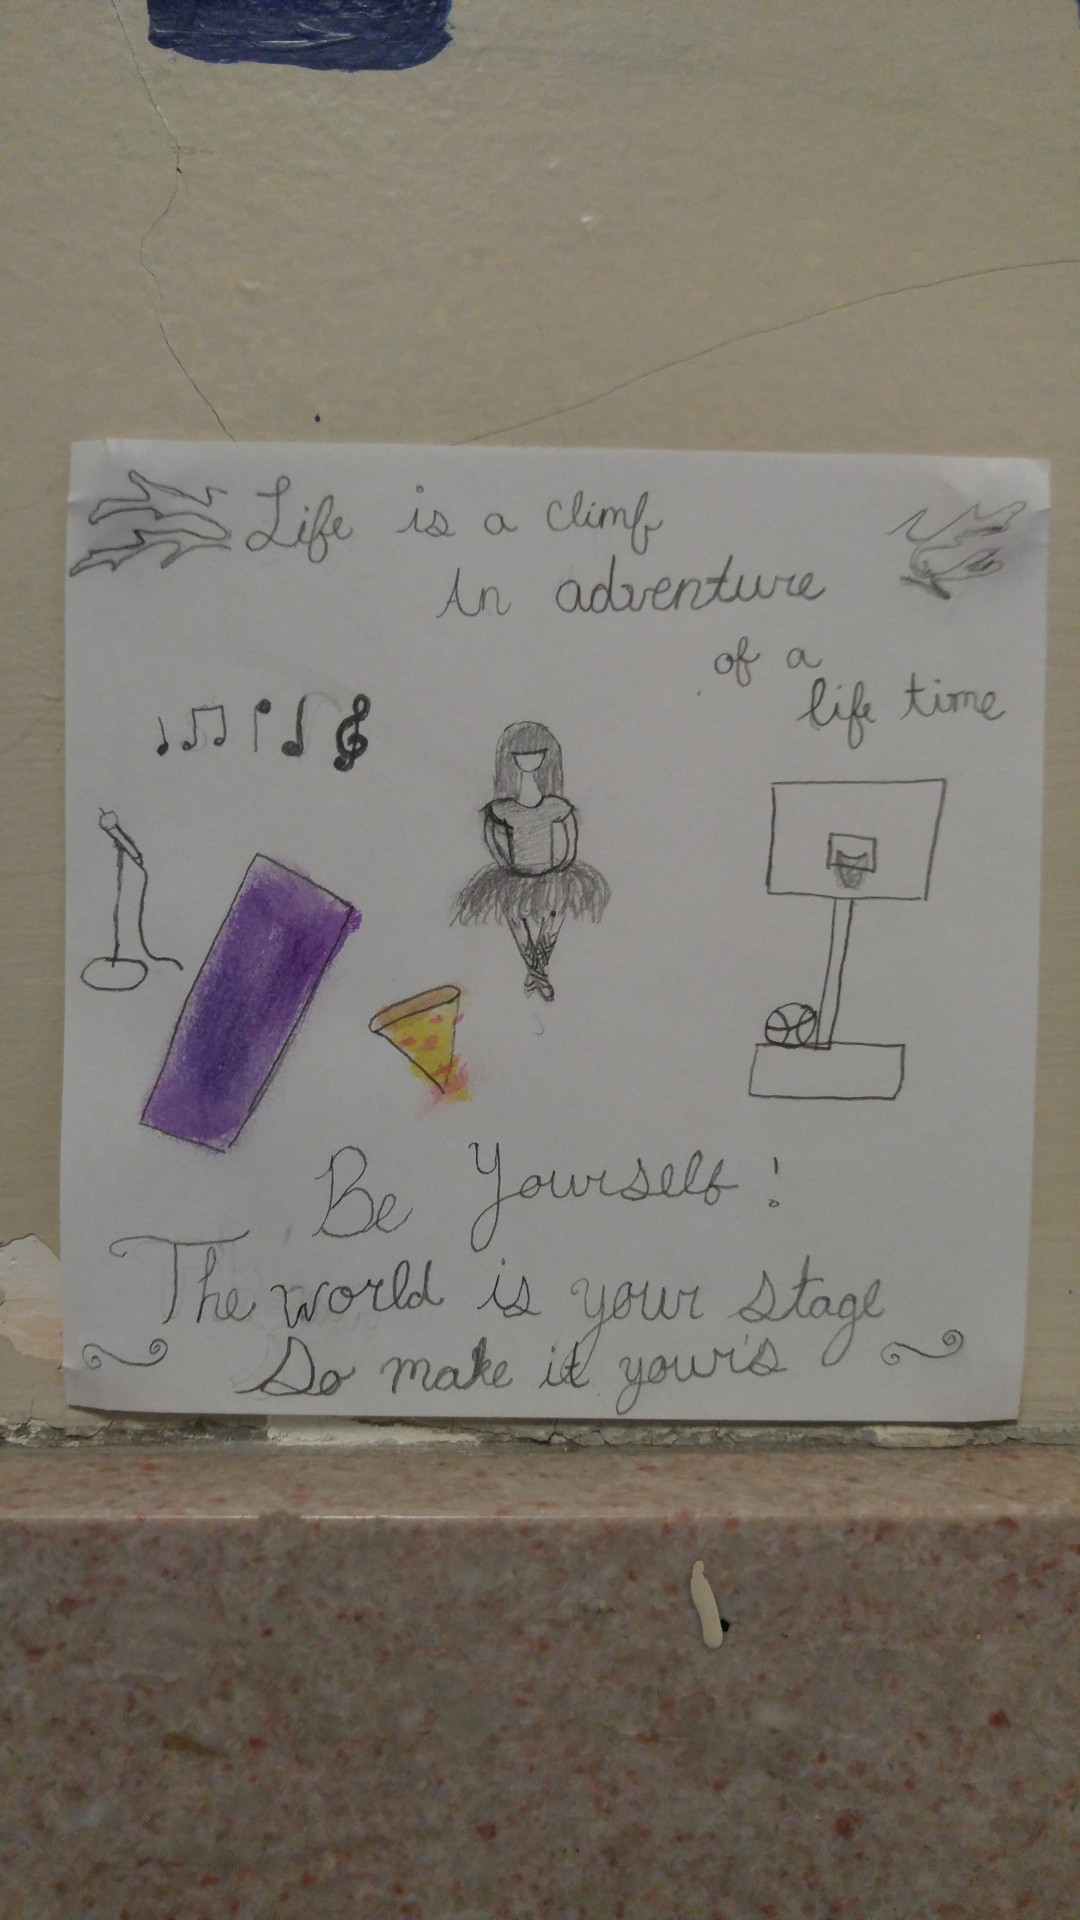 Life is a climb
An adventure
of a
life time
Be Yourself!
The world is your stage
So make it your's